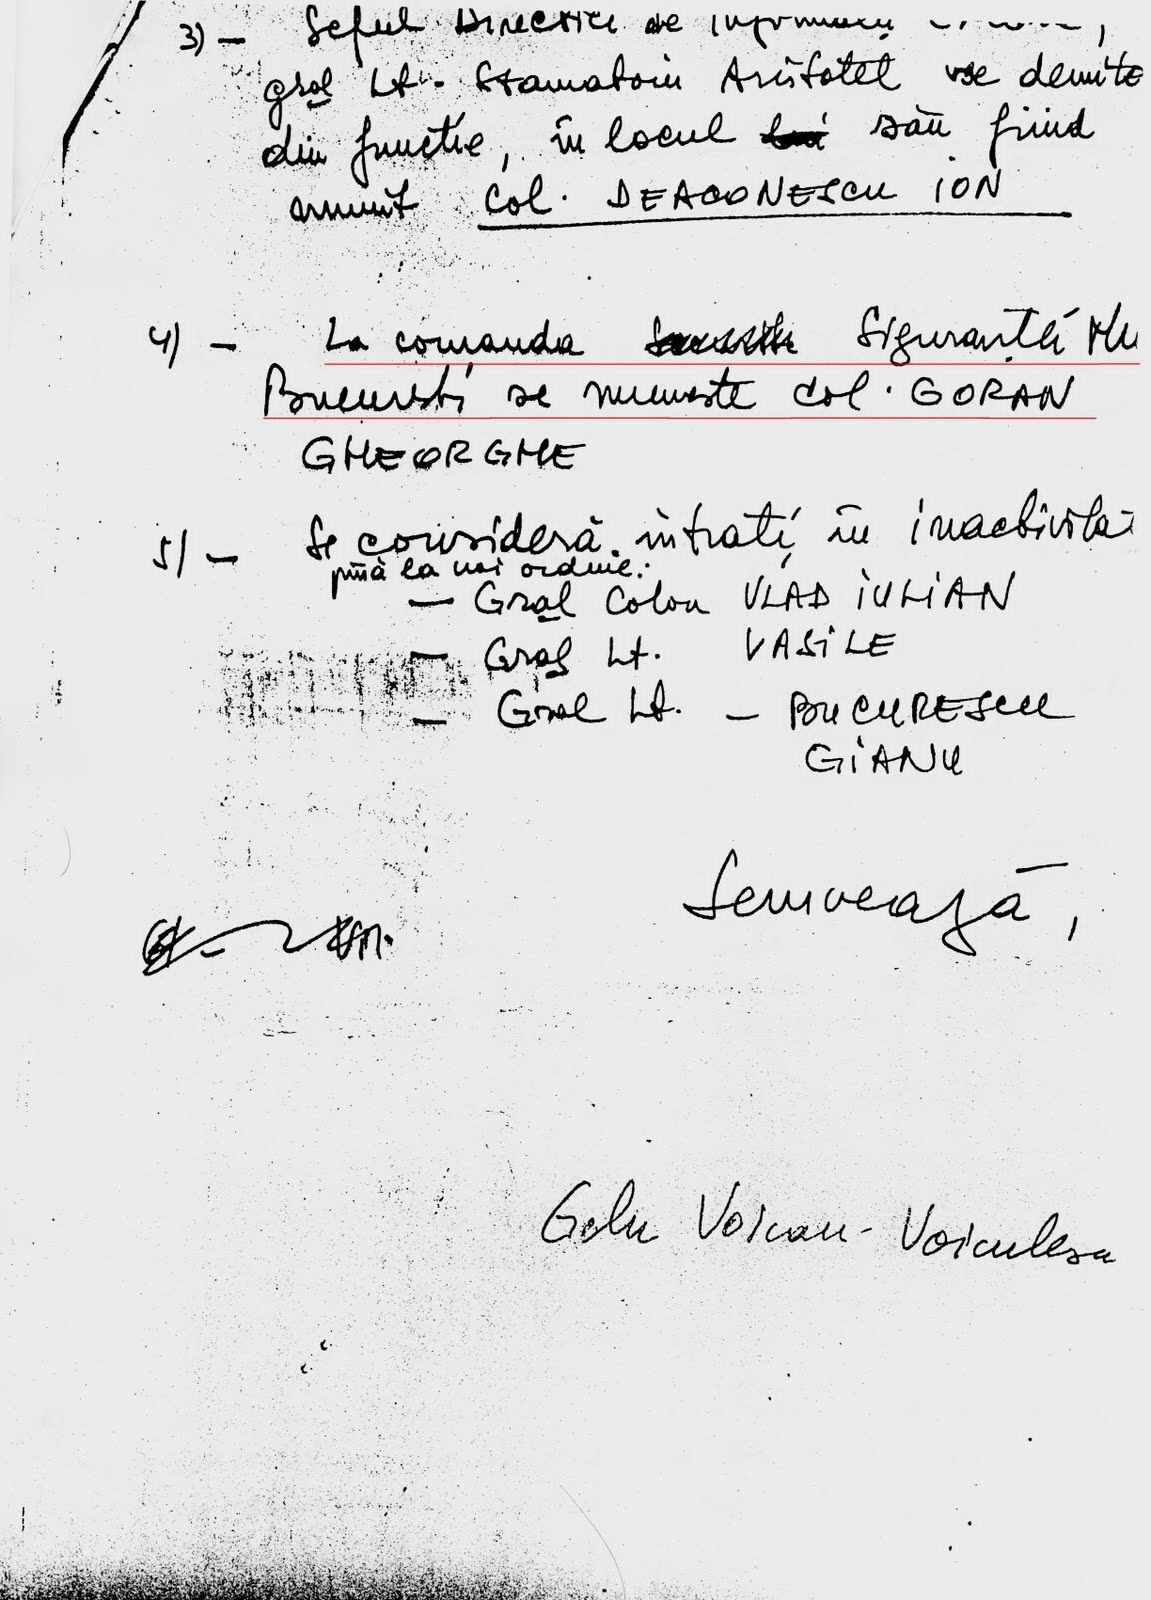 3) – Șeful Direcției de Informații
gral Lt. Stamatoiu Aristotel se demite
din funcție, în locul său fiind
numit Col. DEACONESCU ION
4) – La comanda Siguranței Mu
București se numește col. GORAN
GHEORGHE
5) – Se consideră intrați în inactivita
pînă la noi ordine:
– Gral Colon VLAD IULIAN
– Gral Lt. VASILE
– Gral Lt. – BUCURESCU
GIANU
Semnează,
Gelu Voican-Voiculescu